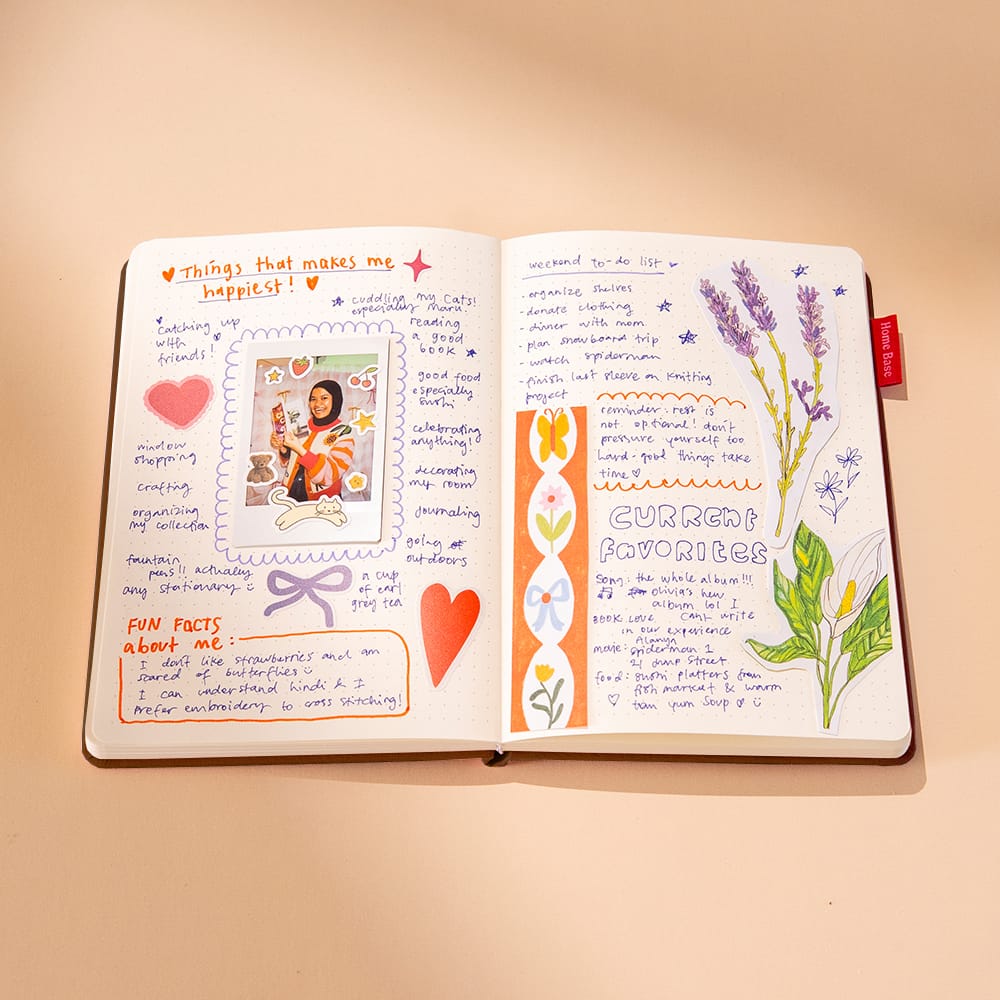 Things that makes me
happiest!
cuddling my cats!
especially maru.
catching up
with
friends!
reading
a good
book
good food
especially
sushi
window
shopping
celebrating
anything!
crafting
decorating
my room
organizing
my collection
journaling
fountain
pens!! actually
any stationary
going
outdoors
a cup
of earl
grey tea
FUN FACTS
about me:
I don't like strawberries and am
scared of butterflies
I can understand hindi & I
prefer embroidery to cross stitching!
weekend to-do list
- organize shelves
- donate clothing
- dinner with mom
- plan snowboard trip
- watch spiderman
- finish last sleeve on knitting
project
reminder: rest is
not optional! don't
pressure yourself too
hard. good things take
time
CURRENT
FAVORITES
song: the whole album!!!
olivia's new
album lol I
BOOK: LOVE can't write
in our experience
Alanya
movie: spiderman 1
21 Jump Street
food: sushi platters from
fish market & warm
tom yum soup
Home Base